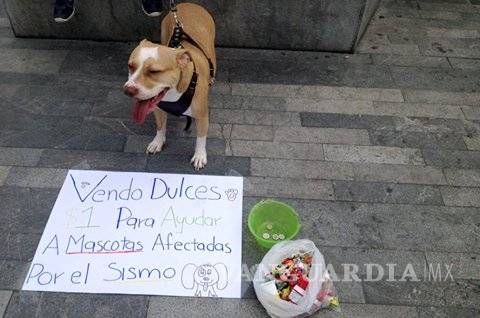 Vendo Dulces
$1 Para Ayudar
A Mascotas Afectadas
Por el Sismo
VANGUARDIA MX